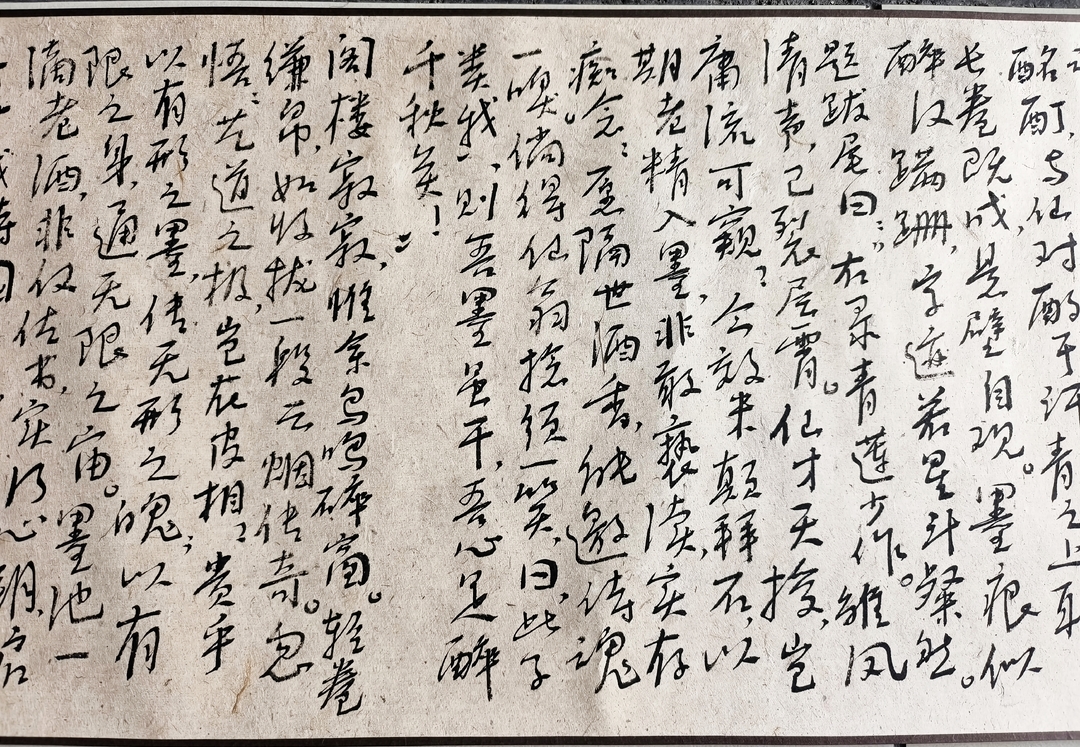 酩酊，与仙对酌于汗青之上耳
长卷既成，悬壁自观。墨痕似
醉汉蹒跚，字迹若星斗粲然。
题跋尾曰：右录青莲少作。雏凤
清声，已裂层霄。仙才天授，岂
庸流可窥？今效米颠拜石，以
期老精入墨，非敢亵渎，实存
痴念：愿隔世酒香，能邀诗魂
一嗅。倘得仙翁捻须一笑，曰，此子
类我，则吾墨虽干，吾心足醉
千秋矣！
阁楼寂寂，惟余鸟鸣碎窗。轻卷
缣帛，如收拢一段云烟传奇。忽
悟：艺道之极，岂在皮相？贵乎
以有形之墨，传无形之魄；以有
限之身，通无限之宙。墨池一
滴老酒，非仅佐书，实乃心